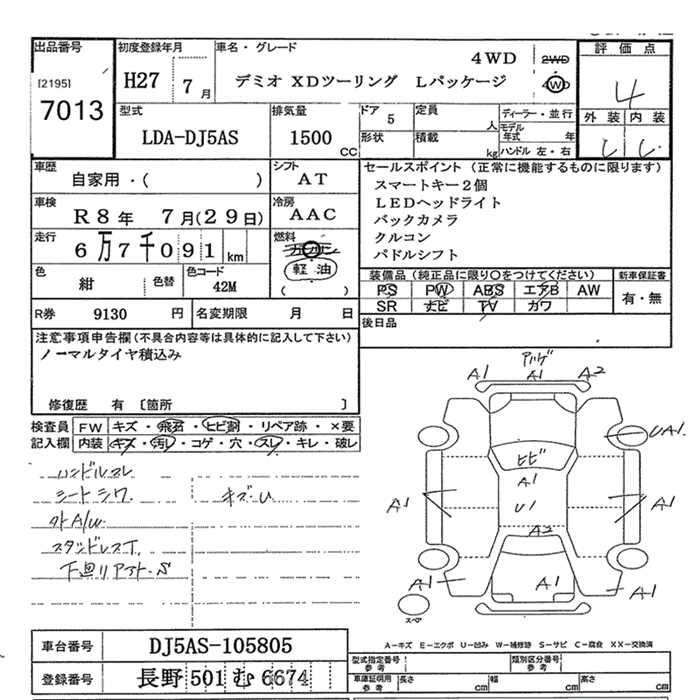 出品番号
[2195]
7013
初度登録年月
H27 7月
車名・グレード
4WD
デミオ XDツーリング Lパッケージ
2WD
4WD
評価点
4
外装 内装
型式
LDA-DJ5AS
排気量
1500 CC
ドア 5
形状
定員 人
積載 kg
ディーラー・並行
モデル年式 年
ハンドル 左・右
車歴
自家用・( )
シフト
AT
車検
R8年 7月(29日)
冷房
AAC
走行
6万7千091km
燃料
ガソリン
軽油
( )
色
紺
色替
色コード
42M
セールスポイント (正常に機能するものに限ります)
スマートキー2個
LEDヘッドライト
バックカメラ
クルコン
パドルシフト
装備品 (純正品に限り○をつけてください)
PS PW ABS エアB AW
SR ナビ TV カワ
新車保証書
有・無
R券 9130 円
名変期限 月 日
後日品
注意事項申告欄(不具合内容等は具体的に記入して下さい)
ノーマルタイヤ積込み
修復歴 有 〔箇所 〕
検査員記入欄
FW キズ・飛石・ヒビ割・リペア跡・×要
内装 キズ・汚レ・コゲ・穴・スレ・キレ・破レ
ハンドルスレ
シートシワ キズ・U
外A/W
下廻リアクト・S
A1 A1 A2
UA1
ヒビ
A1
U1
A1 A1
A2
A1 A1 A1
スペア
A-キズ E-エクボ U-凹み W-補修跡 S-サビ C-腐食 XX-交換済
車台番号 DJ5AS-105805
登録番号 長野 501 む 6674
型式指定番号 参考
類別区分番号 参考
車庫証明用 参考
長さ cm
幅 cm
高さ cm